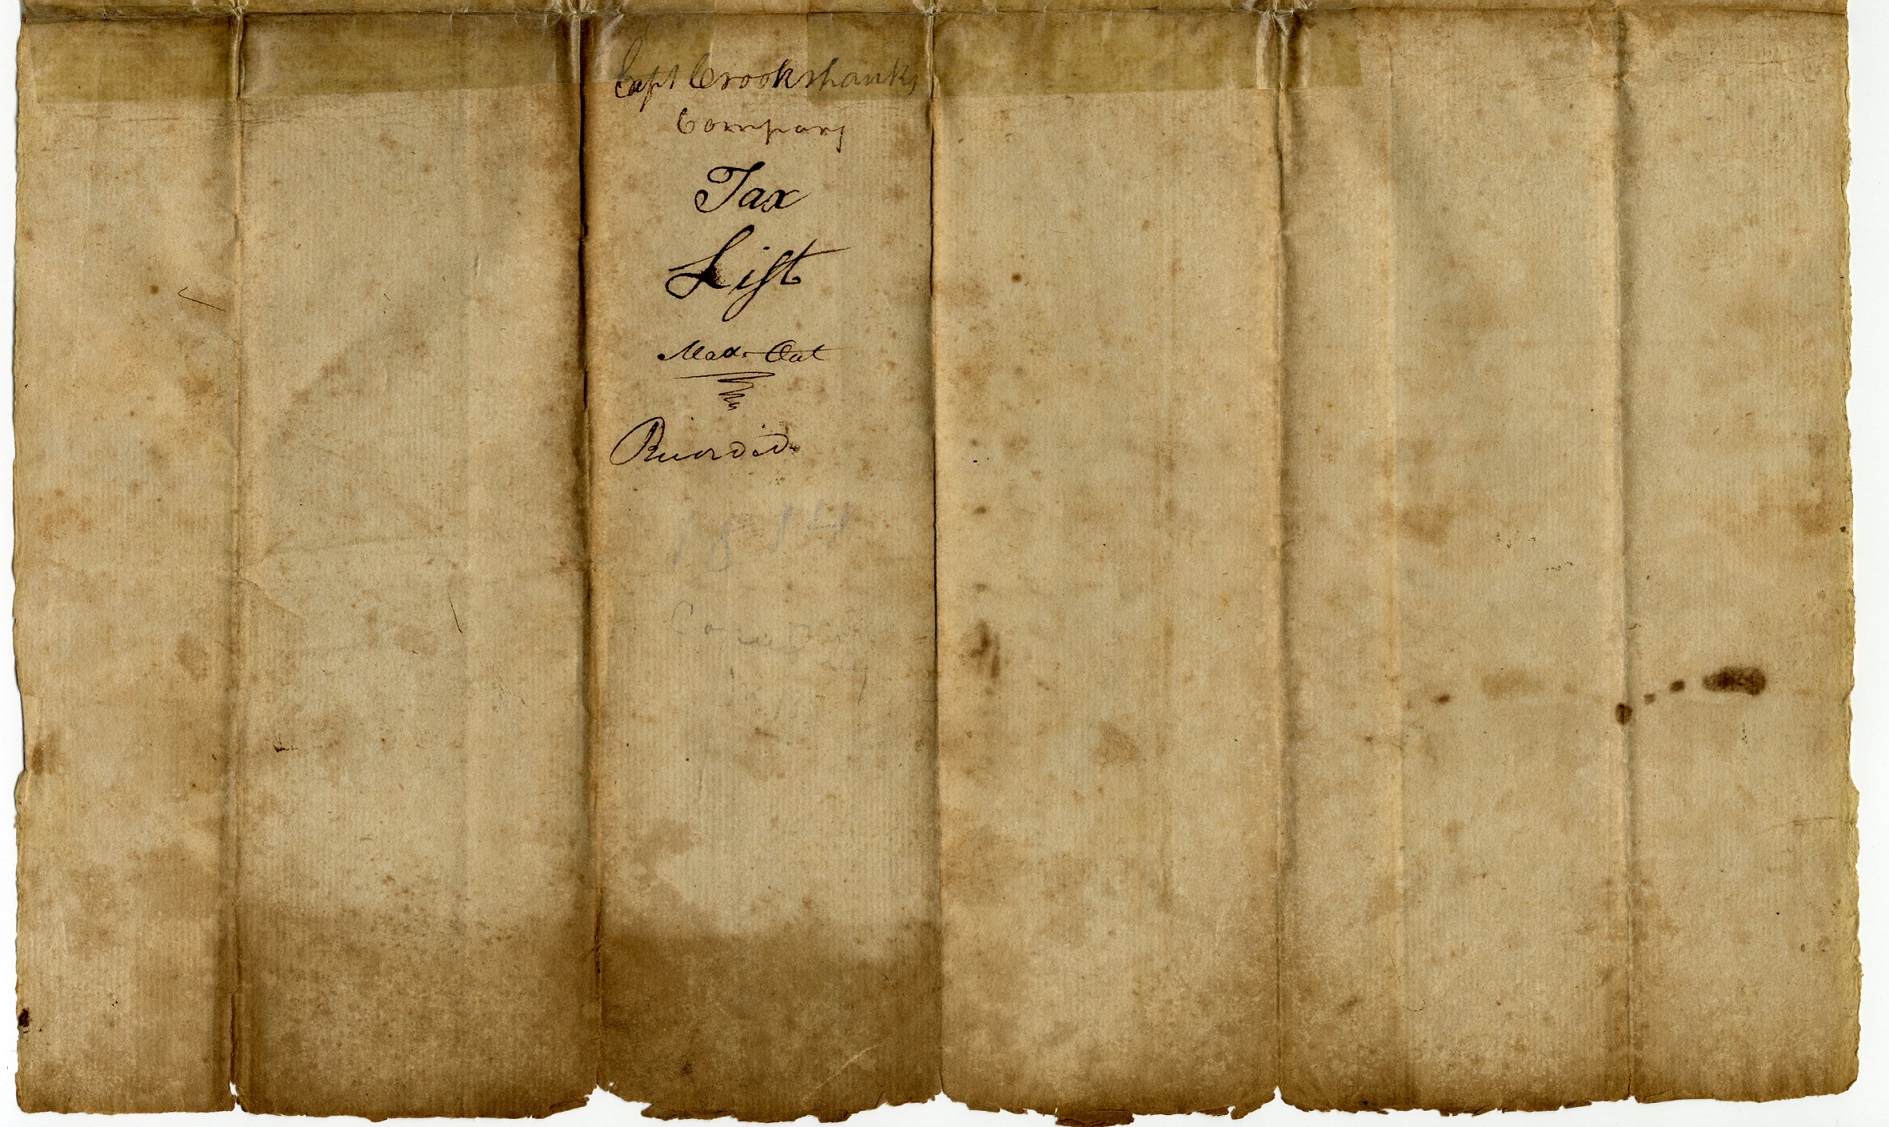 Capt Crookshanks
Company
Tax
List
Made Out
Recorded
1814